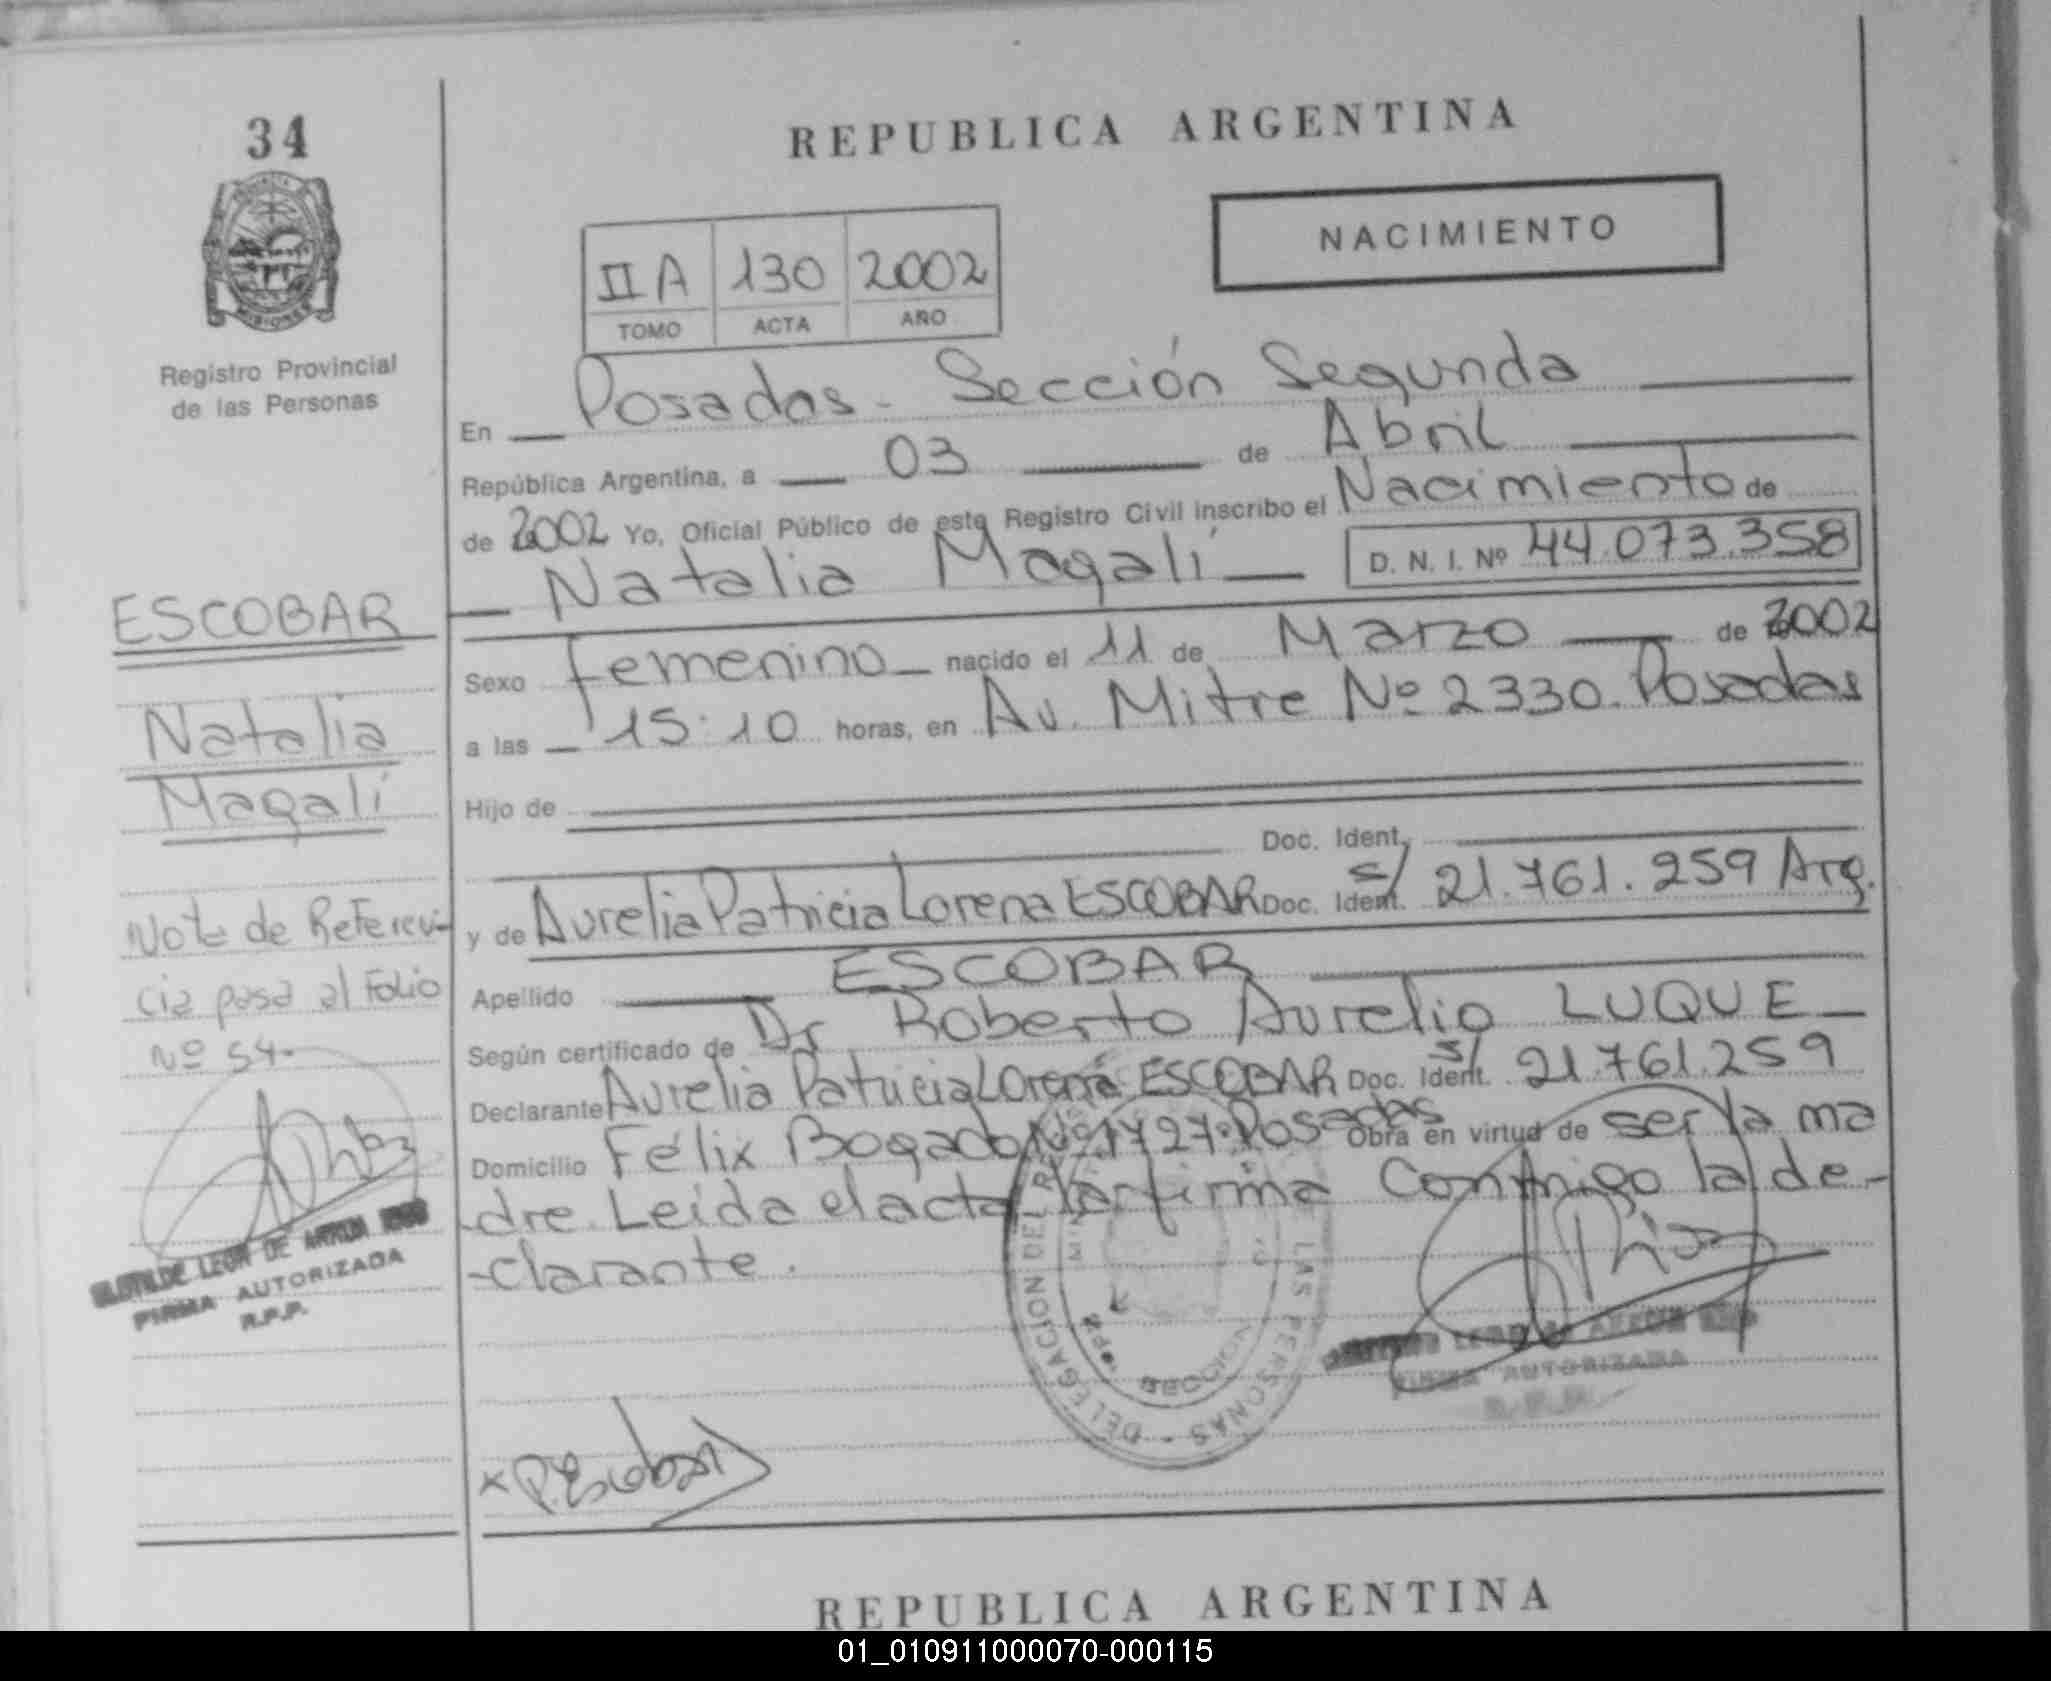 34
Registro Provincial
de las Personas
ESCOBAR
Natalia
Magalí
Nota de Referen-
cia pasa al Folio
Nº 54.
CLOTILDE LEON DE
FIRMA AUTORIZADA
R.P.P.
REPUBLICA ARGENTINA
NACIMIENTO
II A 130 2002
TOMO ACTA AÑO
En Posadas - Sección Segunda
República Argentina, a 03 de Abril
de 2002 Yo, Oficial Público de este Registro Civil inscribo el Nacimiento de
Natalia Magalí D. N. I. Nº 44.073.358
Sexo femenino nacido el 11 de Marzo de 2002
a las 15:10 horas, en Av. Mitre Nº 2330. Posadas
Hijo de
Doc. Ident.
y de Aurelia Patricia Lorena ESCOBAR Doc. Ident. s/ 21.761.259 Arg.
Apellido ESCOBAR
Según certificado de Dr Roberto Aurelio LUQUE
Declarante Aurelia Patricia Lorena ESCOBAR Doc. Ident. s/ 21.761.259
Domicilio Félix Bogado Nº 1727. Posadas Obra en virtud de ser la ma
-dre. Leída el acta la firma Conmigo la de-
-clarante.
DELEGACION DE LAS PERSONAS
SECCION
FIRMA AUTORIZADA
x P. Escobar
REPUBLICA ARGENTINA
01_010911000070-000115